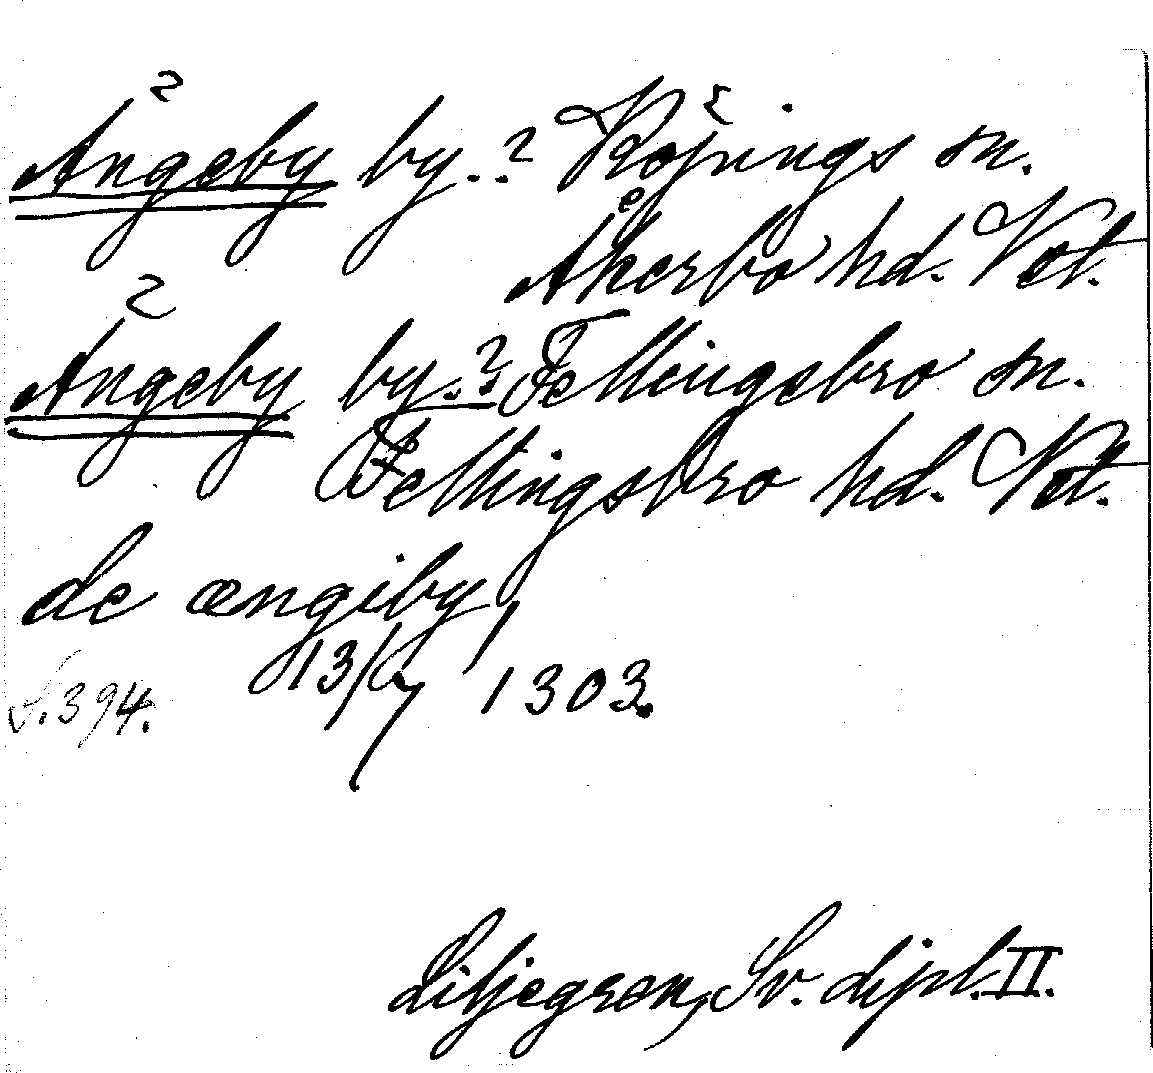 Ängeby by.? Köpings sn.
Åkerbo hd. Vstl.
Ängeby by.? Fellingsbro sn.
Fellingsbro hd. Vstl.
de ængiby,
S. 394. 13/7 1303.
Liljegren, Sv. dipl. II.